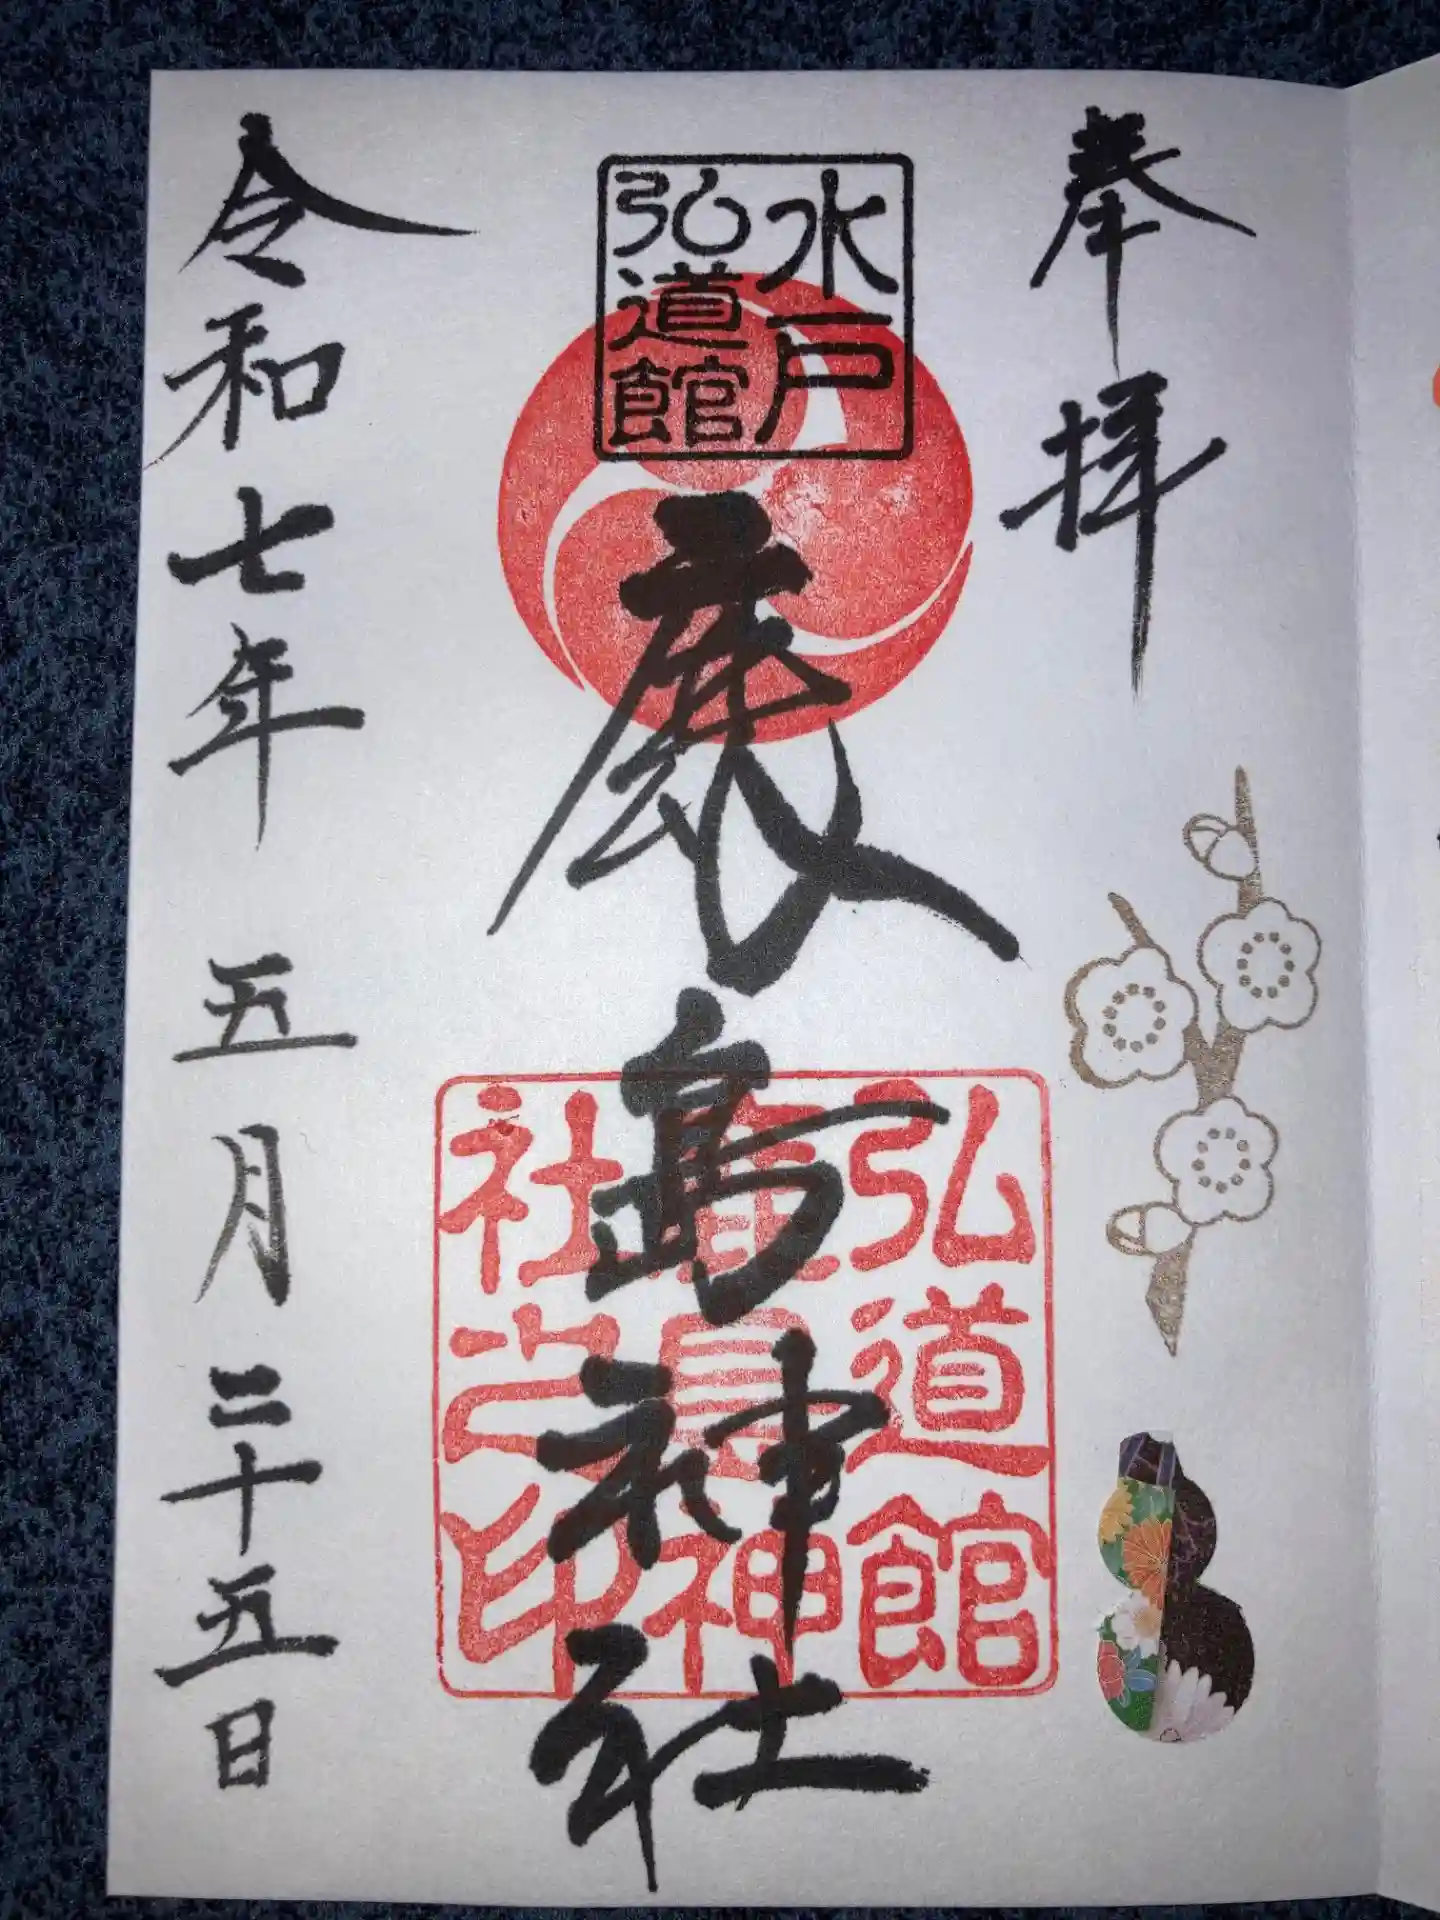 奉拝
水戸
弘道館
鹿島神社
弘道館
鹿島神
社之印
令和七年 五月二十五日